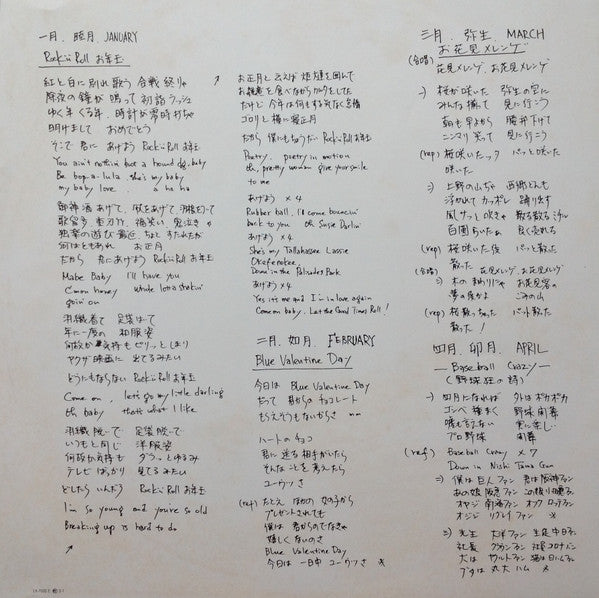 一月. 睦月. JANUARY
Rock'n Roll お年玉
紅と白に別れ歌う 合戦終りゃ
除夜の鐘が 鳴って 初詣ラッシュ
ゆく年くる年. 時計が零時打ちゃ
明けまして おめでとう
そこで 君に あげよう Rock'n Roll お年玉
You ain't nothin but a hound dog. baby
Be bop-a-lula. she's my baby
my baby love. a ha ha
御神酒あげて、
独楽の遊び 最近. ちょとすたれたが
何はともあれ お正月
だから 君にあげよう Rock'n Roll お年玉
Mabe Baby I'll have you
C'mon honey whole lotta shakin'
goin' on
羽織着て 足袋はて
年に一度の 和服姿
何故か気持も ピリッとしまり
ヤクザ映画に 出てるみたい
どうにもならない Rock'n Roll お年玉
Come on, let's go my little darling
oh baby that's what I like
羽織脱いで 足袋脱いで
いつもと同じ 洋服姿
何故か気持も ダラっとゆるみ
テレビばっかり 見てるみたい
どしたらいんだろう Rock'n Roll お年玉
I'm so young and you're so old
Breaking up is hard to do
お正月と云えば 炬燵を囲んで
お雑煮を食べながらカルタをしてた
だけど 今年は何もする気なく
ゴロリと横に 寝正月
だから 僕にもちょうだい Rock'n Roll お年玉
Poetry. poetry in motion
Oh, pretty woman give your smile
to me
あげよう × 4
Rubber ball, I'll come bouncin'
back to you oh Susie Darlin'
あげよう × 4
She's my Tallahassee Lassie
Okefenokee,
Down in the Palisades Park
あげよう × 4
Yes it's me and I'm in love again
Come on baby. Let the Good Times Roll!
二月. 如月. FEBRUARY
Blue Valentine Day
今日は Blue Valentine Day
だって 君からのチョコレート
もらえそうもないからさ
ハートのチョコ
君に 送る 相手がいたら
そんなことを考えたら
ユーウツさ
(rep) たとえ ほかの女の子から
プレゼントされても
僕は 君からのでなきゃ
嬉しくないのさ
Blue Valentine Day
今日は 一日中 ユーウツさ
三月. 弥生. MARCH
お花見メレンゲ
(合唱) 花見メレンゲ. お花見メレンゲ
桜が咲いた 弥生の空に
みんな揃って 見に行こう
朝も早よから 腰弁下げて
ニンマリ笑って 見に行こう
(rep) 桜咲いたッタ パッと咲いた
咲いた
上野の山ちゃ 西郷どんも
浮かれて カッポレ 踊り出す
(rep) 桜咲いた後 パッと散った
散った
(合唱) 花見メレンゲ. お花見メレンゲ
木の まわりにゃ お花見客の
夢の後かよ ごみの山
(rep) 桜散っちゃった パット散った
散った!
四月. 卯月. APRIL
— Baseball Crazy —
(野球狂の詩)
四月になれば 外はポカポカ
ゴンベ 種まく 野球 開幕
プロ野球 開幕
(ref) Baseball Crazy × 7
Down in Nishi Tama Gun
僕は 巨人ファン 君は阪神ファン
あの娘 阪急ファン
オヤジ 南海ファン オフクロ ロッテファン
先生 大洋ファン 生徒 中日ファン
社長 クラウンファン 社宅 コロナバン
犬は ヤクルトファン 猫は日ハムファン
ブタは 丸大ハム